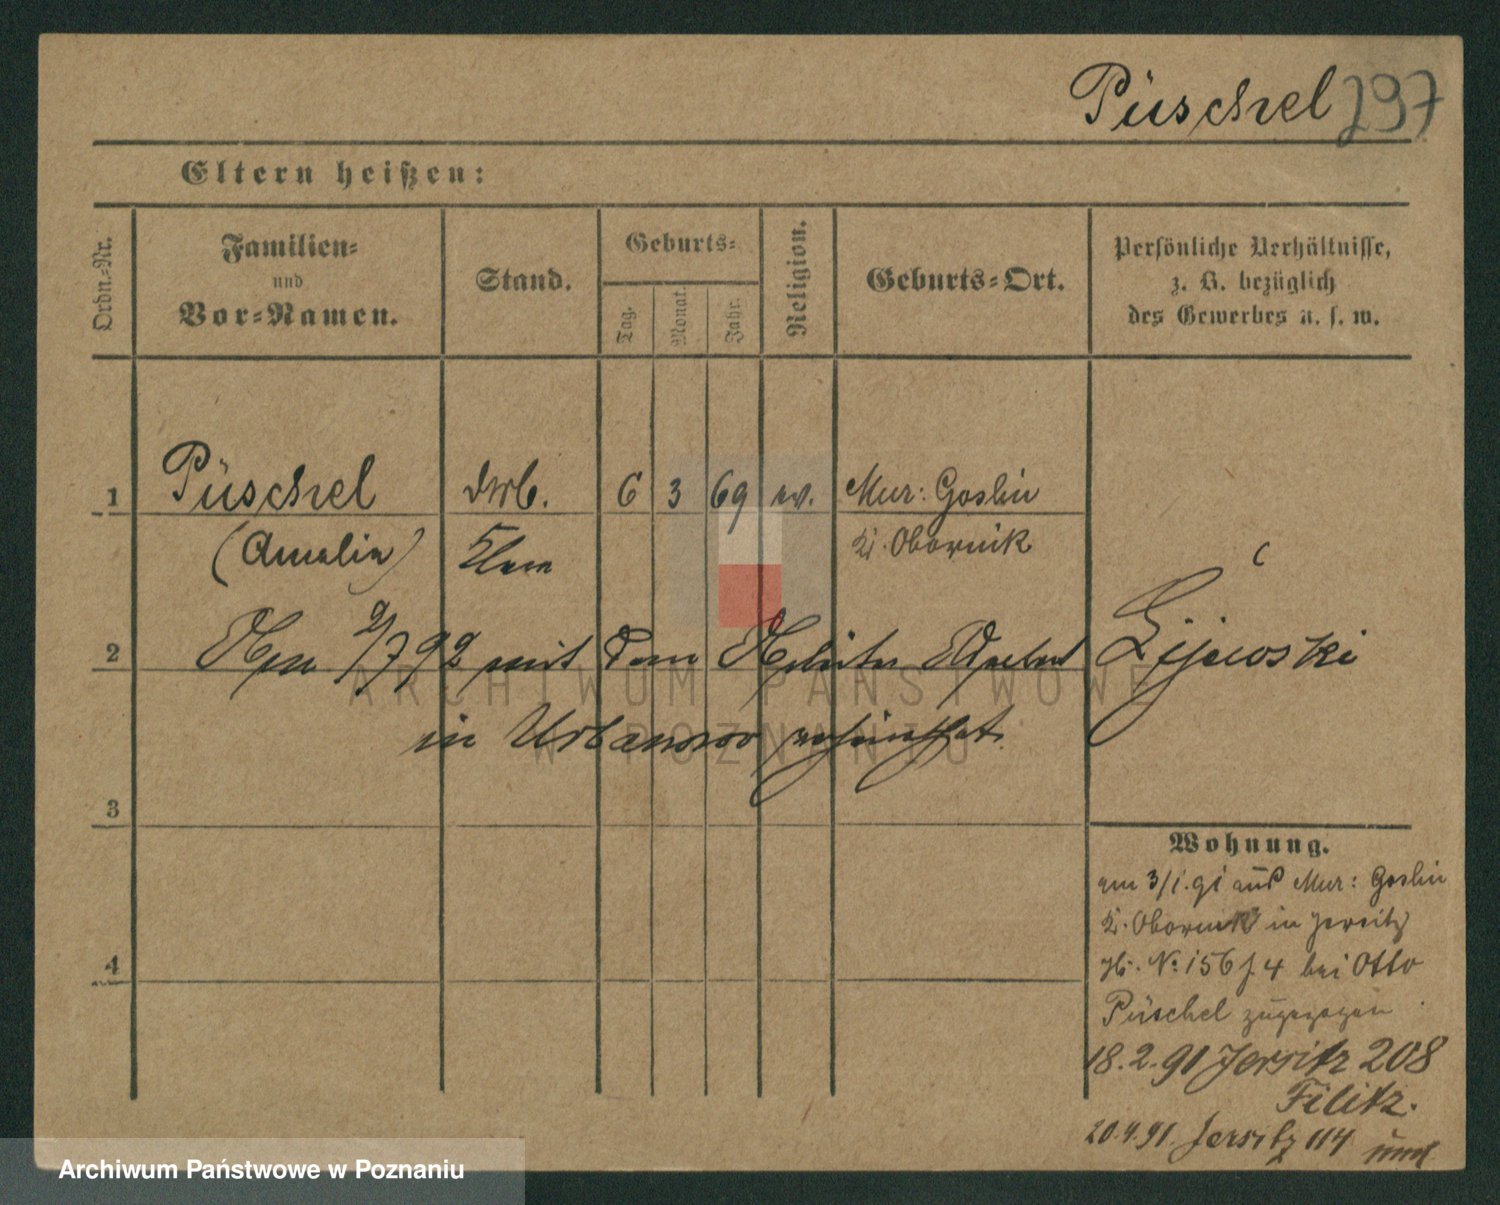 Püschel 297
Eltern heißen:
Ordn.-Nr.
Familien-
und
Vor-Namen.
Stand.
Geburts-
Tag.
Monat.
Jahr.
Religion.
Geburts-Ort.
Persönliche Verhältnisse,
z. B. bezüglich
des Gewerbes u. s. w.
1 Püschel 6 3 69 ev. Mur: Goslin
(Amalie) Kr. Obornik
2 92 mit dem Lijewski
in Urbanowo
3
4
Wohnung.
am 3/1.91 aus Mur: Goslin
Kr. Obornik in Jersitz
No 156 f. 4 bei Otto
Püschel zugezogen
18.2.91 Jersitz 208
Filitz.
20.4.91. Jersitz 114
ARCHIWUM PAŃSTWOWE
W POZNANIU
Archiwum Państwowe w Poznaniu